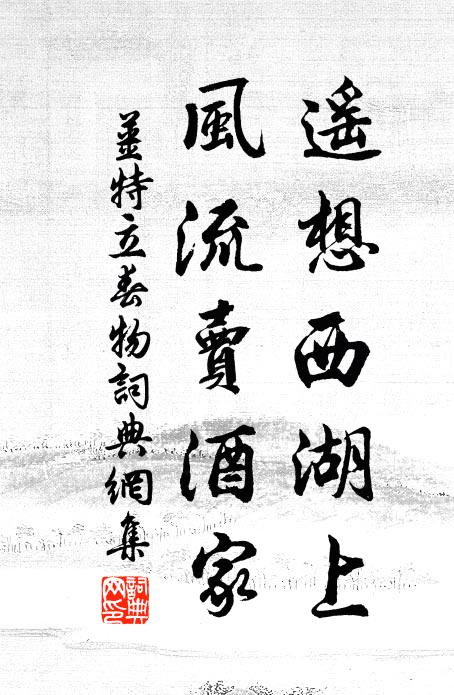 遥想西湖上
風流賣酒家
姜特立春物詞典網集
詞典網印